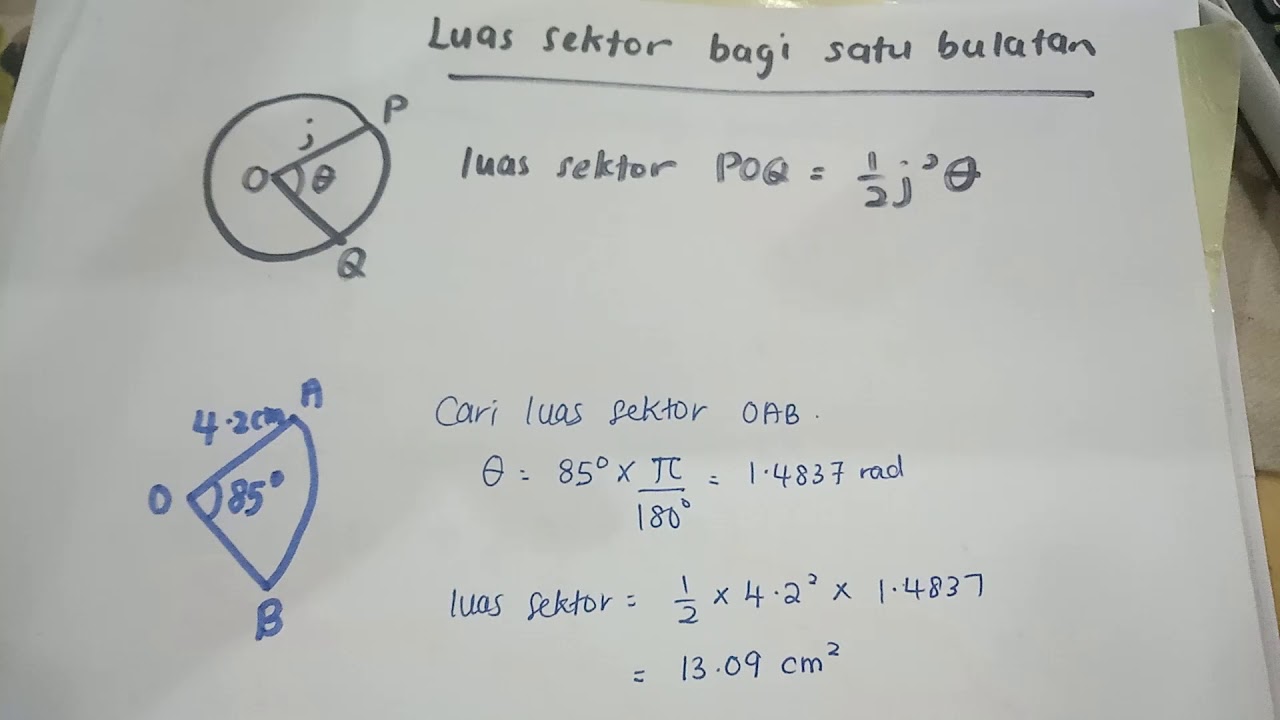 Luas sektor bagi satu bulatan
P
j
O θ
Q
luas sektor POQ = 1/2 j²θ
A
4.2cm
O 85°
B
Cari luas sektor OAB.
θ = 85° × π/180° = 1.4837 rad
luas sektor = 1/2 × 4.2² × 1.4837
= 13.09 cm²